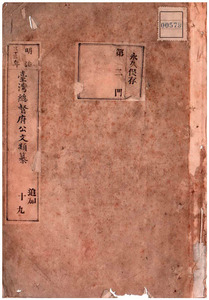 永久保存
第二門
明治
臺灣總督府公文類纂
追加
十九